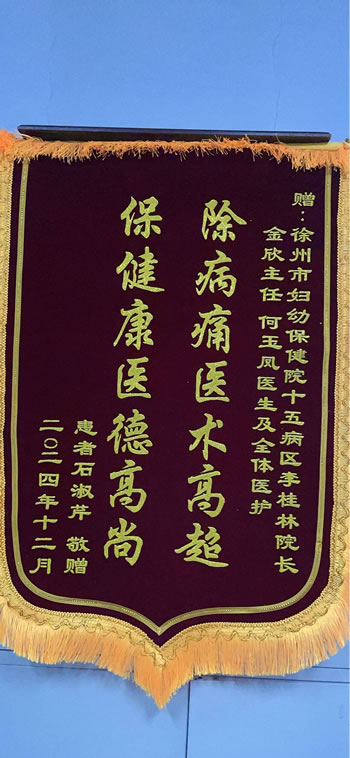 赠：徐州市妇幼保健院十五病区李桂林院长
金欣主任 何玉凤医生及全体医护
除病痛医术高超
保健康医德高尚
患者石淑芹 敬赠
二〇二四年十二月